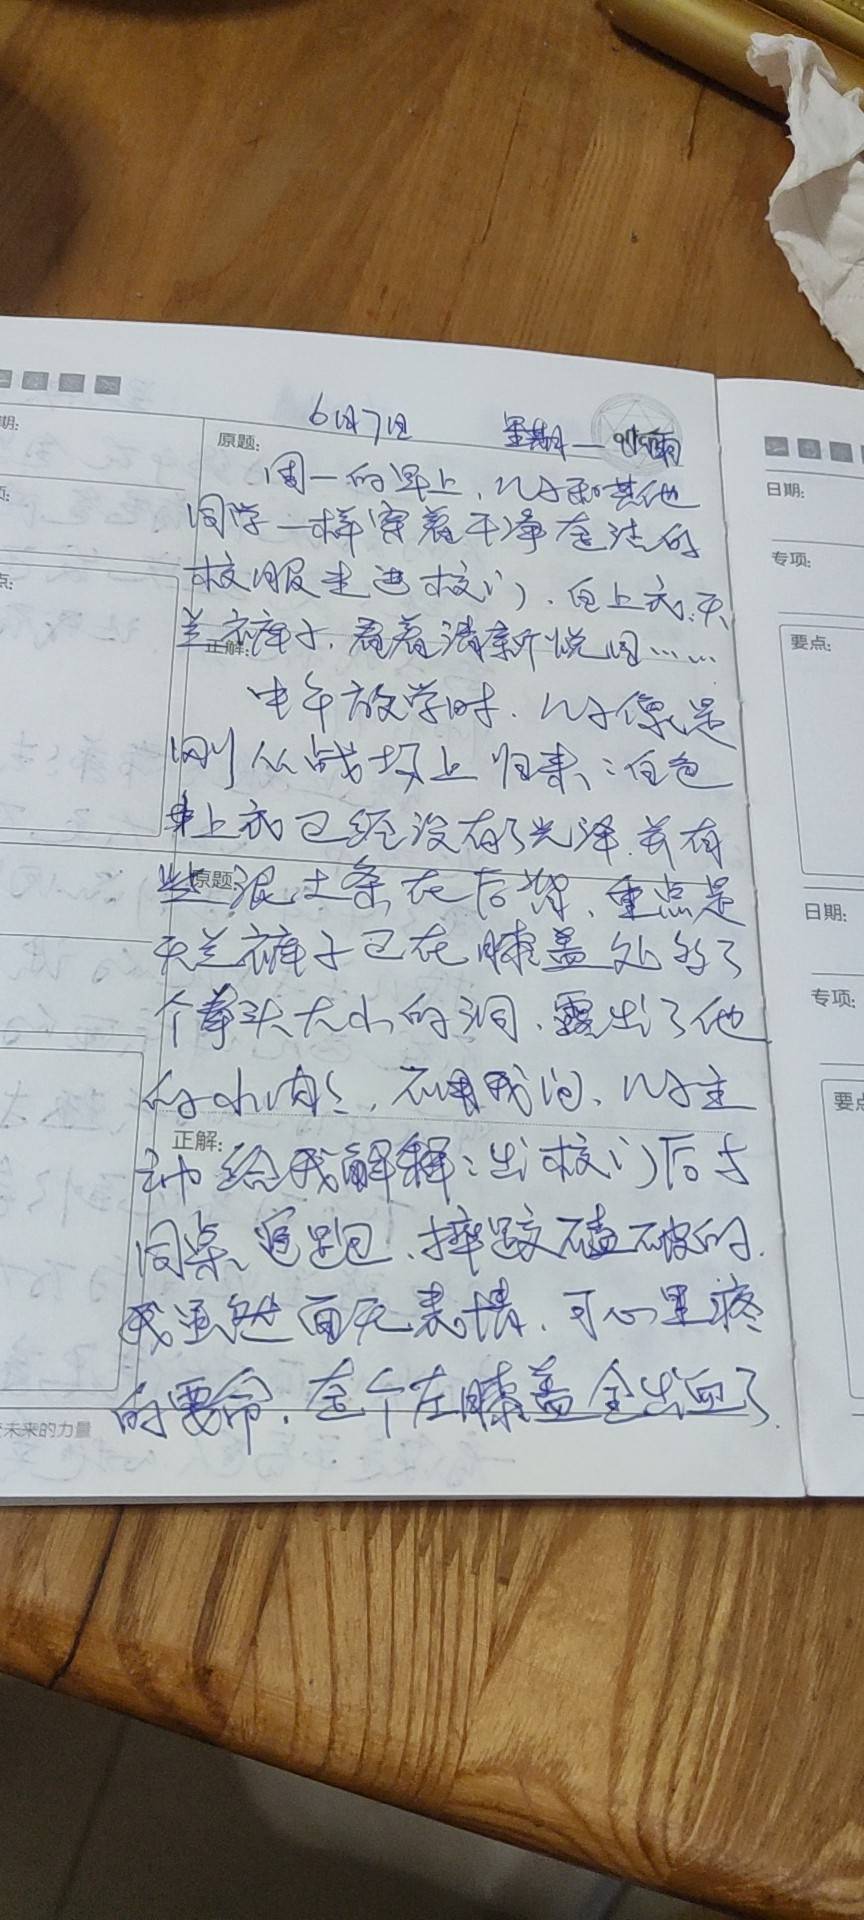 期:
原题:
6月7日 星期一 雨
日期:
周一的早上，儿子和其他
同学一样穿着干净整洁的
专项:
校服走进校门，白上衣、天
兰裤子，看着清新悦目……
正解:
要点:
中午放学时，儿子像是
刚从战场上归来：白色
上衣已经没有了光泽，并有
些泥土条在后背，重点是
原题:
日期:
天兰裤子已在膝盖处多了
个拳头大小的洞，露出了他
专项:
的小肉，不用我问，儿子主
要点
正解:
动给我解释：出校门后与
同桌追跑，摔跤磕破的，
我虽然面无表情，可心里疼
的要命，整个左膝盖全出血了
未来的力量